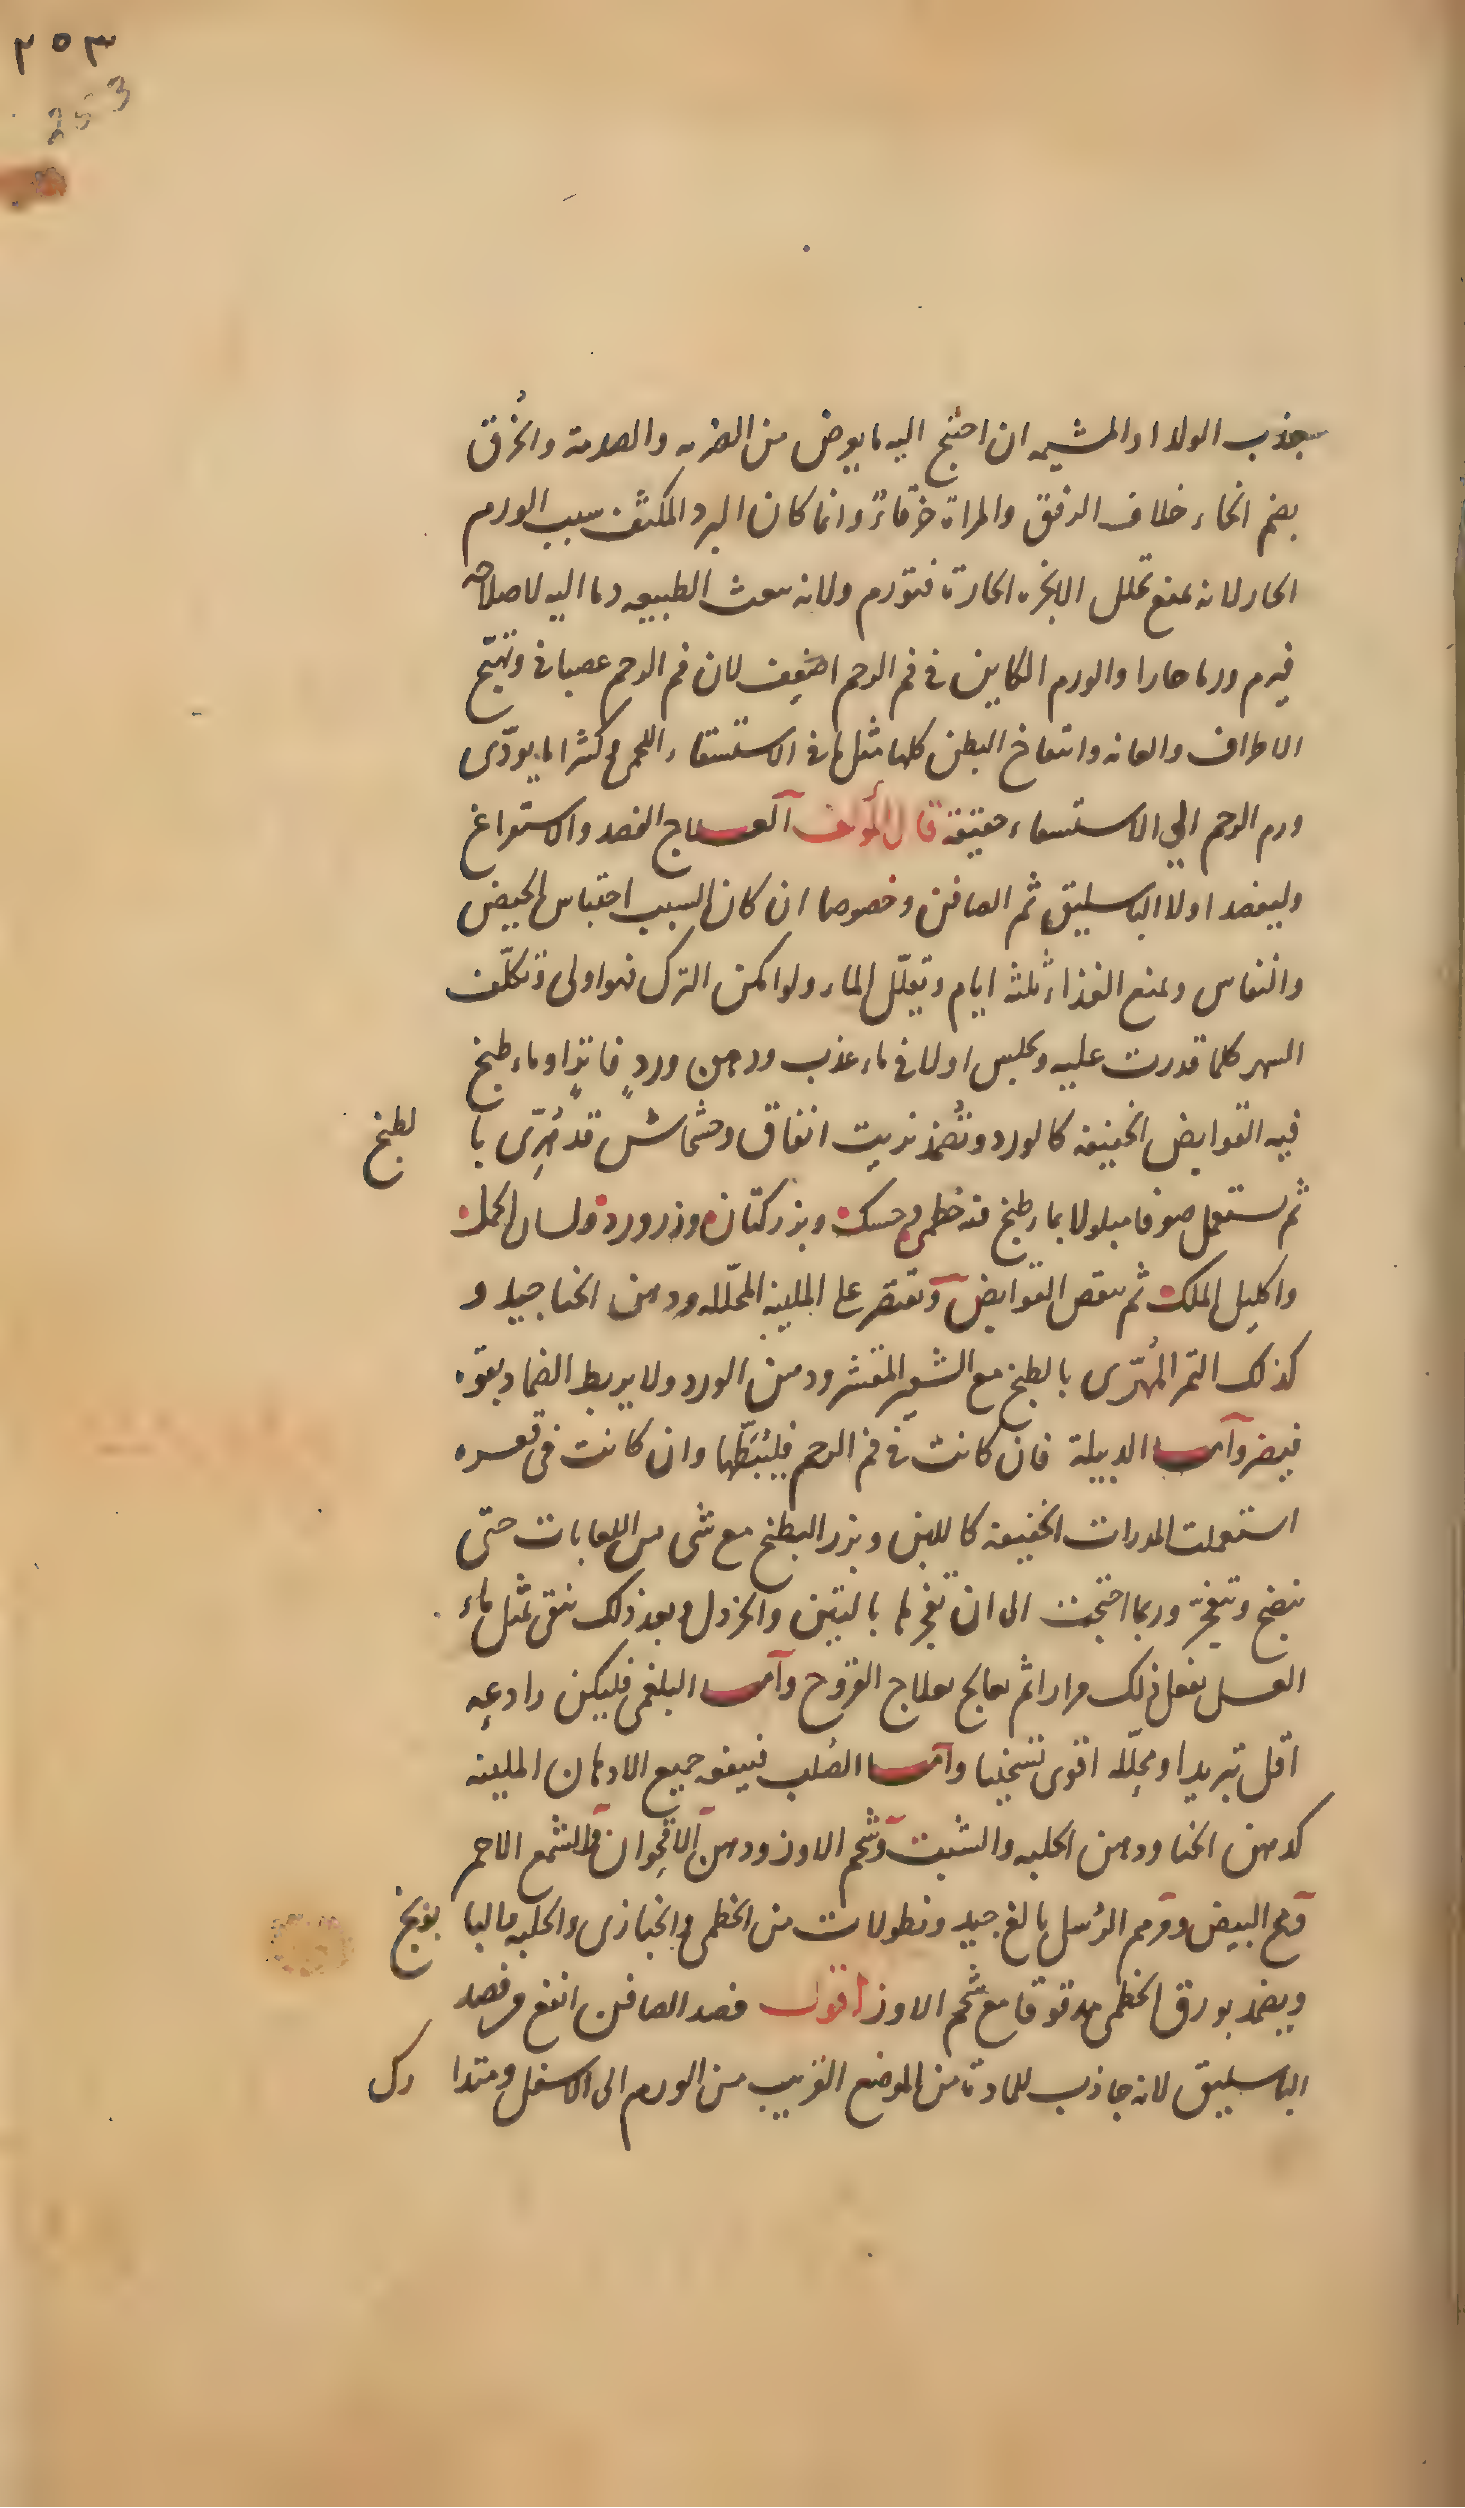 ٢٥٣
253
بجذب الولد او المشيمه ان احتيج اليه ما يعرض من الضربه والصدمة والخُرق
بضم الخاء خلاف الرفق والمراة خرقاء وانما كان البرد المكثف سبب الورم
الحار لانه يمنع تحلل الابخره الحارة فتورم ولانه يبعث الطبيعه دما اليه لاصلاحه
فيرم ورما حارا والورم الكاين في فم الرحم اضعف لان فم الرحم عصبانى وتهيّج
الاطراف والعانه وانتفاخ البطن كلها مثل ما فى الاستسقاء اللحمى وكثيرا ما يودّى
ورم الرحم الي الاستسقاء حقيقة قال المؤلف العلاج الفصد والاستفراغ
وليفصد اولا الباسليق ثم الصافن وخصوصا ان كان السبب احتباس الحيض
والنفاس ويمنع الغذاء ثلثه ايام وتقلّل الماء ولو امكن الترك فهو اولى وتكلّف
السهر كلما قدرت عليه وتجلس اولا فى ماء عذب ودهن وردٍ فاترًا وماء طبخ
فيه القوابض الخفيفه كالورد وتُضمّد بزيت انفاق وخشخاش قد هُرّى با لطبخ
ثم تستعمل صوفا مبلولا بماء طبخ فيه خطمى وحسك وبزر كتان وزر ورد ولسان الحمل
واكليل الملك ثم ينقص القوابض ويقتصر على الملينه المحلّله ودهن الحنا جيد و
كذلك التمر المُهرّى بالطبخ مع الشعير المقشر ودهن الورد ولا يربط الضماد بقوه
فيضر وأما الدبيلة فان كانت فى فم الرحم فليُبَطّها وان كانت فى قعره
استعملت المدرات الخفيفه كاللبن وبزر البطيخ مع شى من اللعابات حتى
تنضج وتنفجر وربما احتجت الى ان تفجرها بالتين والخردل وبعد ذلك تنقى بمثل ماء
العسل يفعل ذلك مرارا ثم تعالج بعلاج القروح وأما البلغمى فليكن رادعه
اقل تبريدا ومحلّله اقوى تسخينا وأما الصُلب فينفعه جميع الادهان الملينه
كدهن الحنا ودهن الحلبه والشبت وشحم الاوز ودهن الاقحوان والشمع الاحمر
ومح البيض ومرهم الرُسل بالغ جيد ونطولات من الخطمى والخبازى والحلبه والبا بونج
ويضمد بورق الخطمى مدقوقا مع شحم الاوز اقول فصد الصافن انفع من فصد
الباسليق لانه جاذب للمادة من الموضع القريب من الورم الى الاسفل ومتدا رك